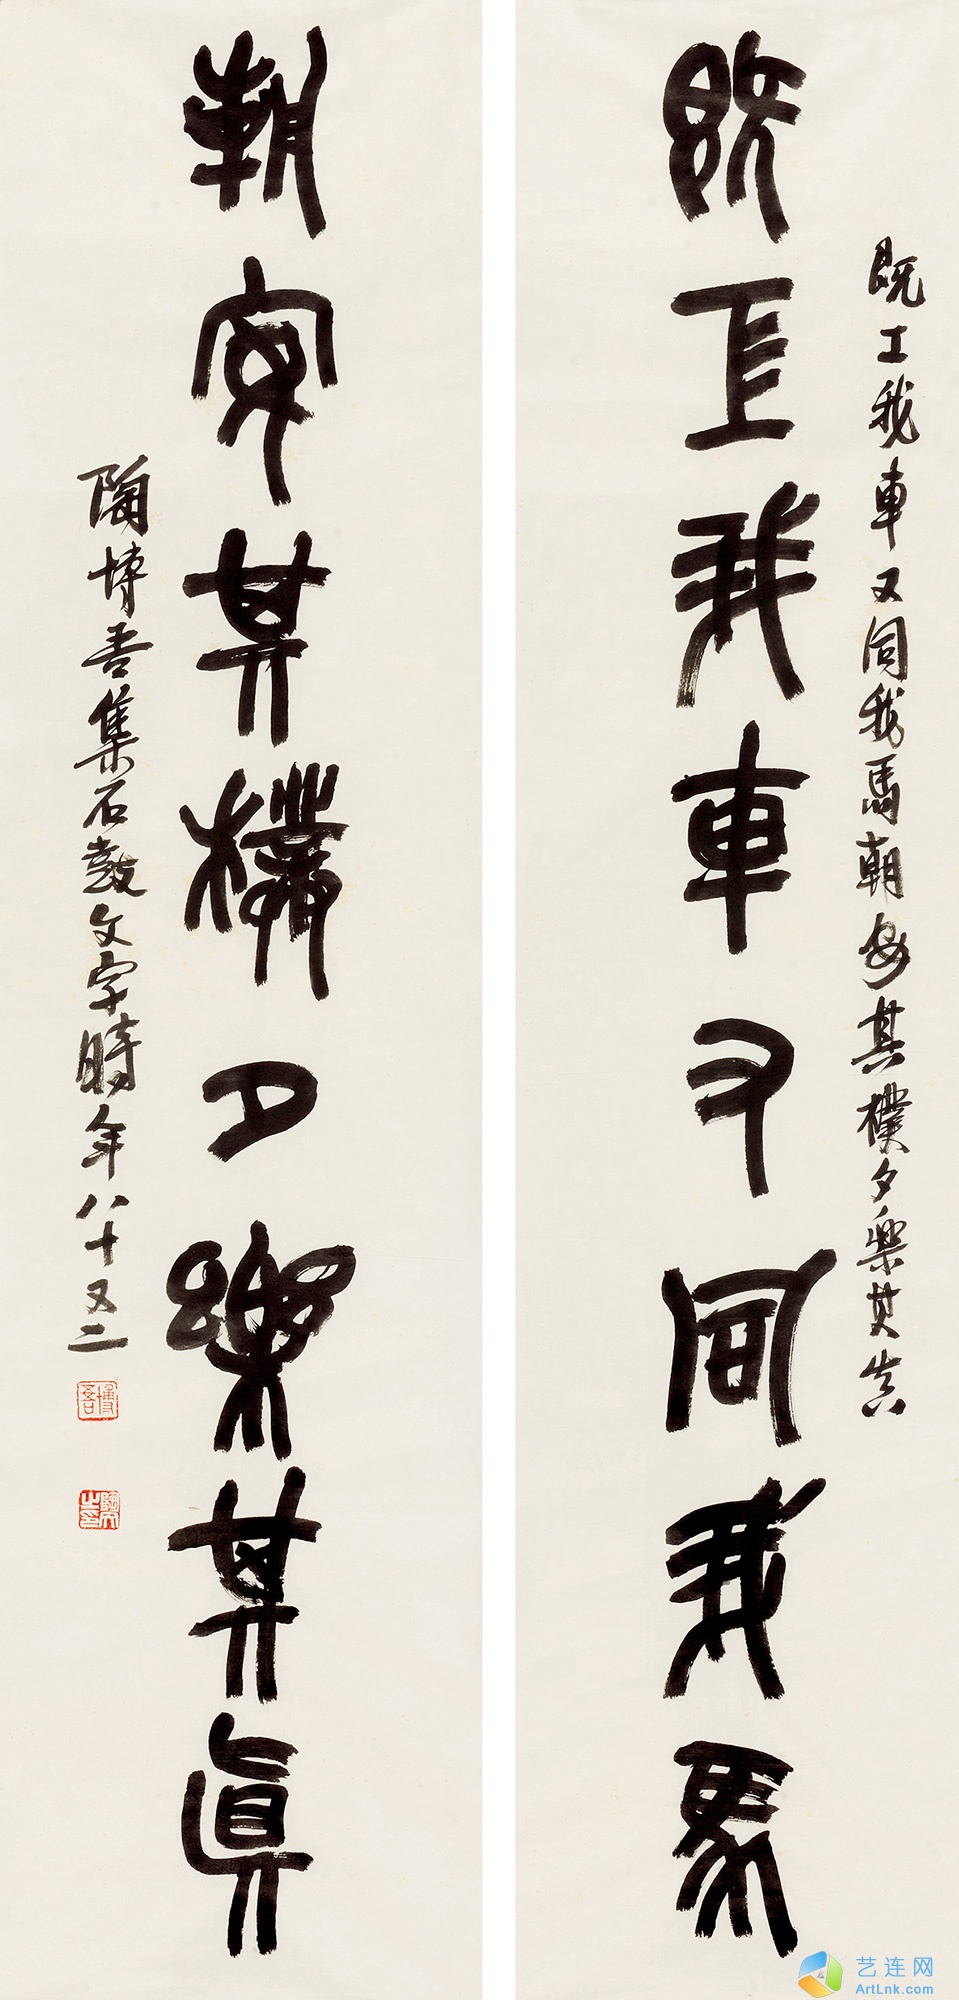 既工我車又同我馬朝安其樸夕樂其真
既工我車又同我馬
朝安其樸夕樂其真
陶博吾集石鼓文字時年八十又二
博吾
艺连网
ArtLnk.com